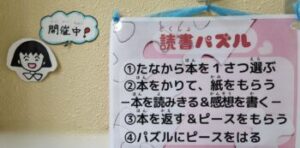 開催中!
どくしょ
読書パズル
①たなから本を1さつ選ぶ
②本をかりて、紙をもらう
−本を読みきる&感想を書く−
③本を返す&ピースをもらう
④パズルにピースをはる